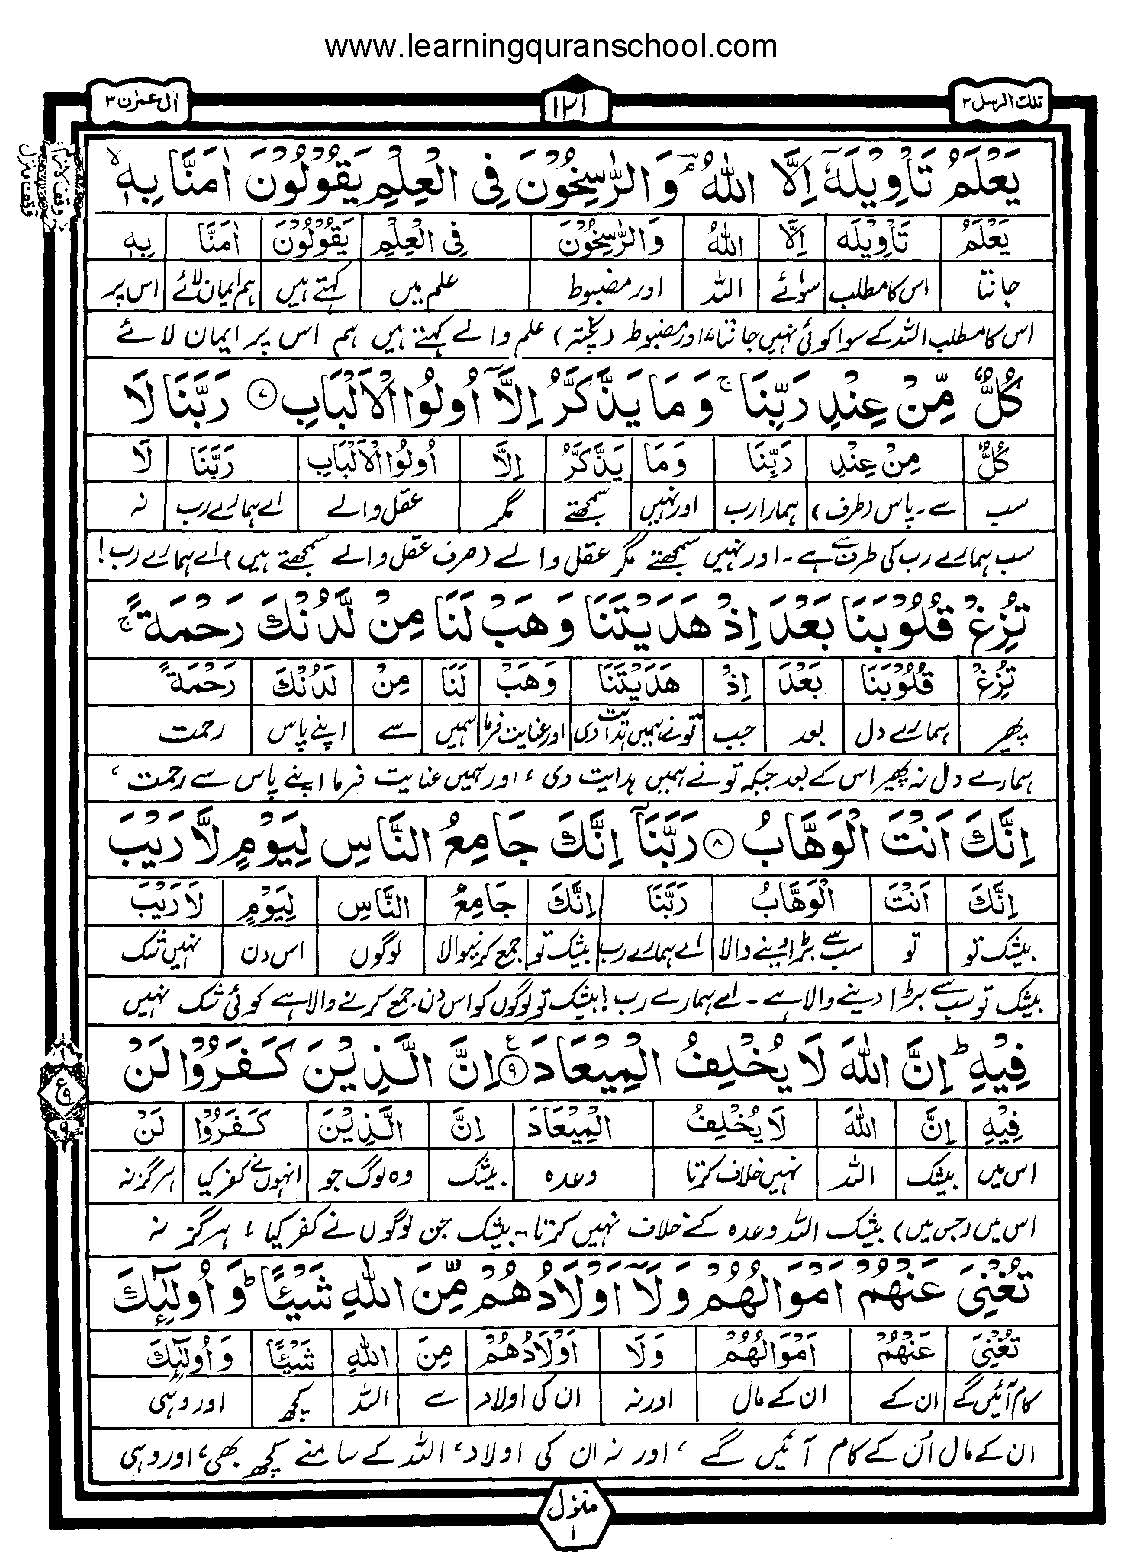 www.learningquranschool.com
تلك الرسل ٣
١٢١
اٰل عمرٰن ٣
يَعْلَمُ تَأْوِيْلَهٗٓ اِلَّا اللّٰهُ ۘ وَالرّٰسِخُوْنَ فِى الْعِلْمِ يَقُوْلُوْنَ اٰمَنَّا بِهٖ ۙ
يَعْلَمُ تَأْوِيْلَهٗ اِلَّا اللّٰهُ وَالرّٰسِخُوْنَ فِى الْعِلْمِ يَقُوْلُوْنَ اٰمَنَّا بِهٖ
جانتا اس کا مطلب سوائے اللہ اور مضبوط علم میں کہتے ہیں ہم ایمان لائے اس پر
اس کا مطلب اللہ کے سوا کوئی نہیں جانتا، اور مضبوط (پختہ) علم والے کہتے ہیں ہم اس پر ایمان لائے
كُلٌّ مِّنْ عِنْدِ رَبِّنَا ۚ وَمَا يَذَّكَّرُ اِلَّآ اُولُوا الْاَلْبَابِ ۷ رَبَّنَا لَا
كُلٌّ مِنْ عِنْدِ رَبِّنَا وَمَا يَذَّكَّرُ اِلَّا اُولُوا الْاَلْبَابِ رَبَّنَا لَا
سب سے ۔ پاس (طرف) ہمارا رب اور نہیں سمجھتے مگر عقل والے اے ہمارے رب نہ
سب ہمارے رب کی طرف سے ہے ۔ اور نہیں سمجھتے مگر عقل والے (صرف عقل والے سمجھتے ہیں) اے ہمارے رب!
تُزِغْ قُلُوْبَنَا بَعْدَ اِذْ هَدَيْتَنَا وَهَبْ لَنَا مِنْ لَّدُنْكَ رَحْمَةً ۚ
تُزِغْ قُلُوْبَنَا بَعْدَ اِذْ هَدَيْتَنَا وَهَبْ لَنَا مِنْ لَدُنْكَ رَحْمَةً
پھیر ہمارے دل بعد جب تو نے ہمیں ہدایت دی اور عنایت فرما ہمیں سے اپنے پاس رحمت
ہمارے دل نہ پھیر اس کے بعد جبکہ تو نے ہمیں ہدایت دی، اور ہمیں عنایت فرما اپنے پاس سے رحمت،
اِنَّكَ اَنْتَ الْوَهَّابُ ۸ رَبَّنَآ اِنَّكَ جَامِعُ النَّاسِ لِيَوْمٍ لَّا رَيْبَ
اِنَّكَ اَنْتَ الْوَهَّابُ رَبَّنَا اِنَّكَ جَامِعُ النَّاسِ لِيَوْمٍ لَا رَيْبَ
بیشک تو تو سب سے بڑا دینے والا اے ہمارے رب بیشک تو جمع کرنیوالا لوگوں اس دن نہیں شک
بیشک تو سب سے بڑا دینے والا ہے ۔ اے ہمارے رب! بیشک تو لوگوں کو اس دن جمع کرنے والا ہے کوئی شک نہیں
فِيْهِ ؕ اِنَّ اللّٰهَ لَا يُخْلِفُ الْمِيْعَادَ ۹ اِنَّ الَّذِيْنَ كَفَرُوْا لَنْ
فِيْهِ اِنَّ اللّٰهَ لَا يُخْلِفُ الْمِيْعَادَ اِنَّ الَّذِيْنَ كَفَرُوْا لَنْ
اس میں بیشک اللہ نہیں خلاف کرتا وعدہ بیشک وہ لوگ جو انہوں نے کفر کیا ہرگز نہ
اس میں (جس میں) بیشک اللہ وعدہ کے خلاف نہیں کرتا ۔ بیشک جن لوگوں نے کفر کیا، ہرگز نہ
تُغْنِىَ عَنْهُمْ اَمْوَالُهُمْ وَلَآ اَوْلَادُهُمْ مِّنَ اللّٰهِ شَيْئًا ؕ وَ اُولٰٓئِكَ
تُغْنِىَ عَنْهُمْ اَمْوَالُهُمْ وَلَا اَوْلَادُهُمْ مِنَ اللّٰهِ شَيْئًا وَاُولٰٓئِكَ
کام آئیں گے ان کے ان کے مال اور نہ ان کی اولاد سے اللہ کچھ اور وہی
ان کے مال اُن کے کام آئیں گے، اور نہ ان کی اولاد، اللہ کے سامنے کچھ بھی، اور وہی
منزل ١